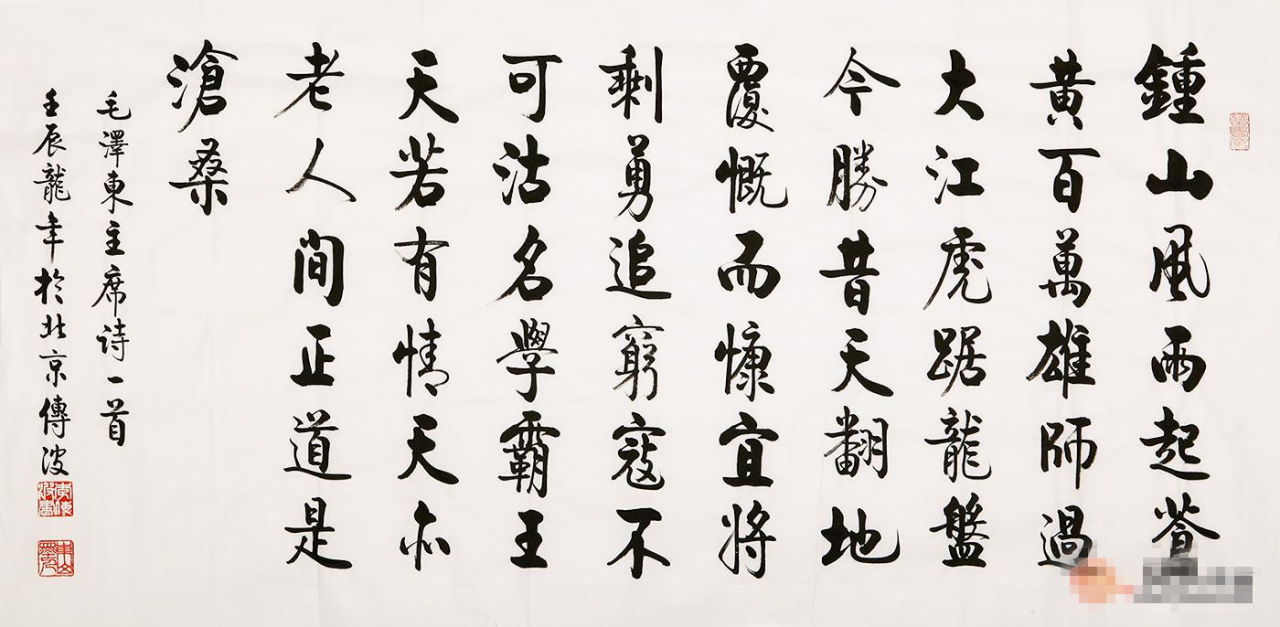 鍾山風雨起蒼
黄百萬雄師過
大江虎踞龍盤
今勝昔天翻地
覆慨而慷宜將
剩勇追窮寇不
可沽名學霸王
天若有情天亦
老人間正道是
滄桑
毛澤東主席诗一首
壬辰龍年於北京傳波